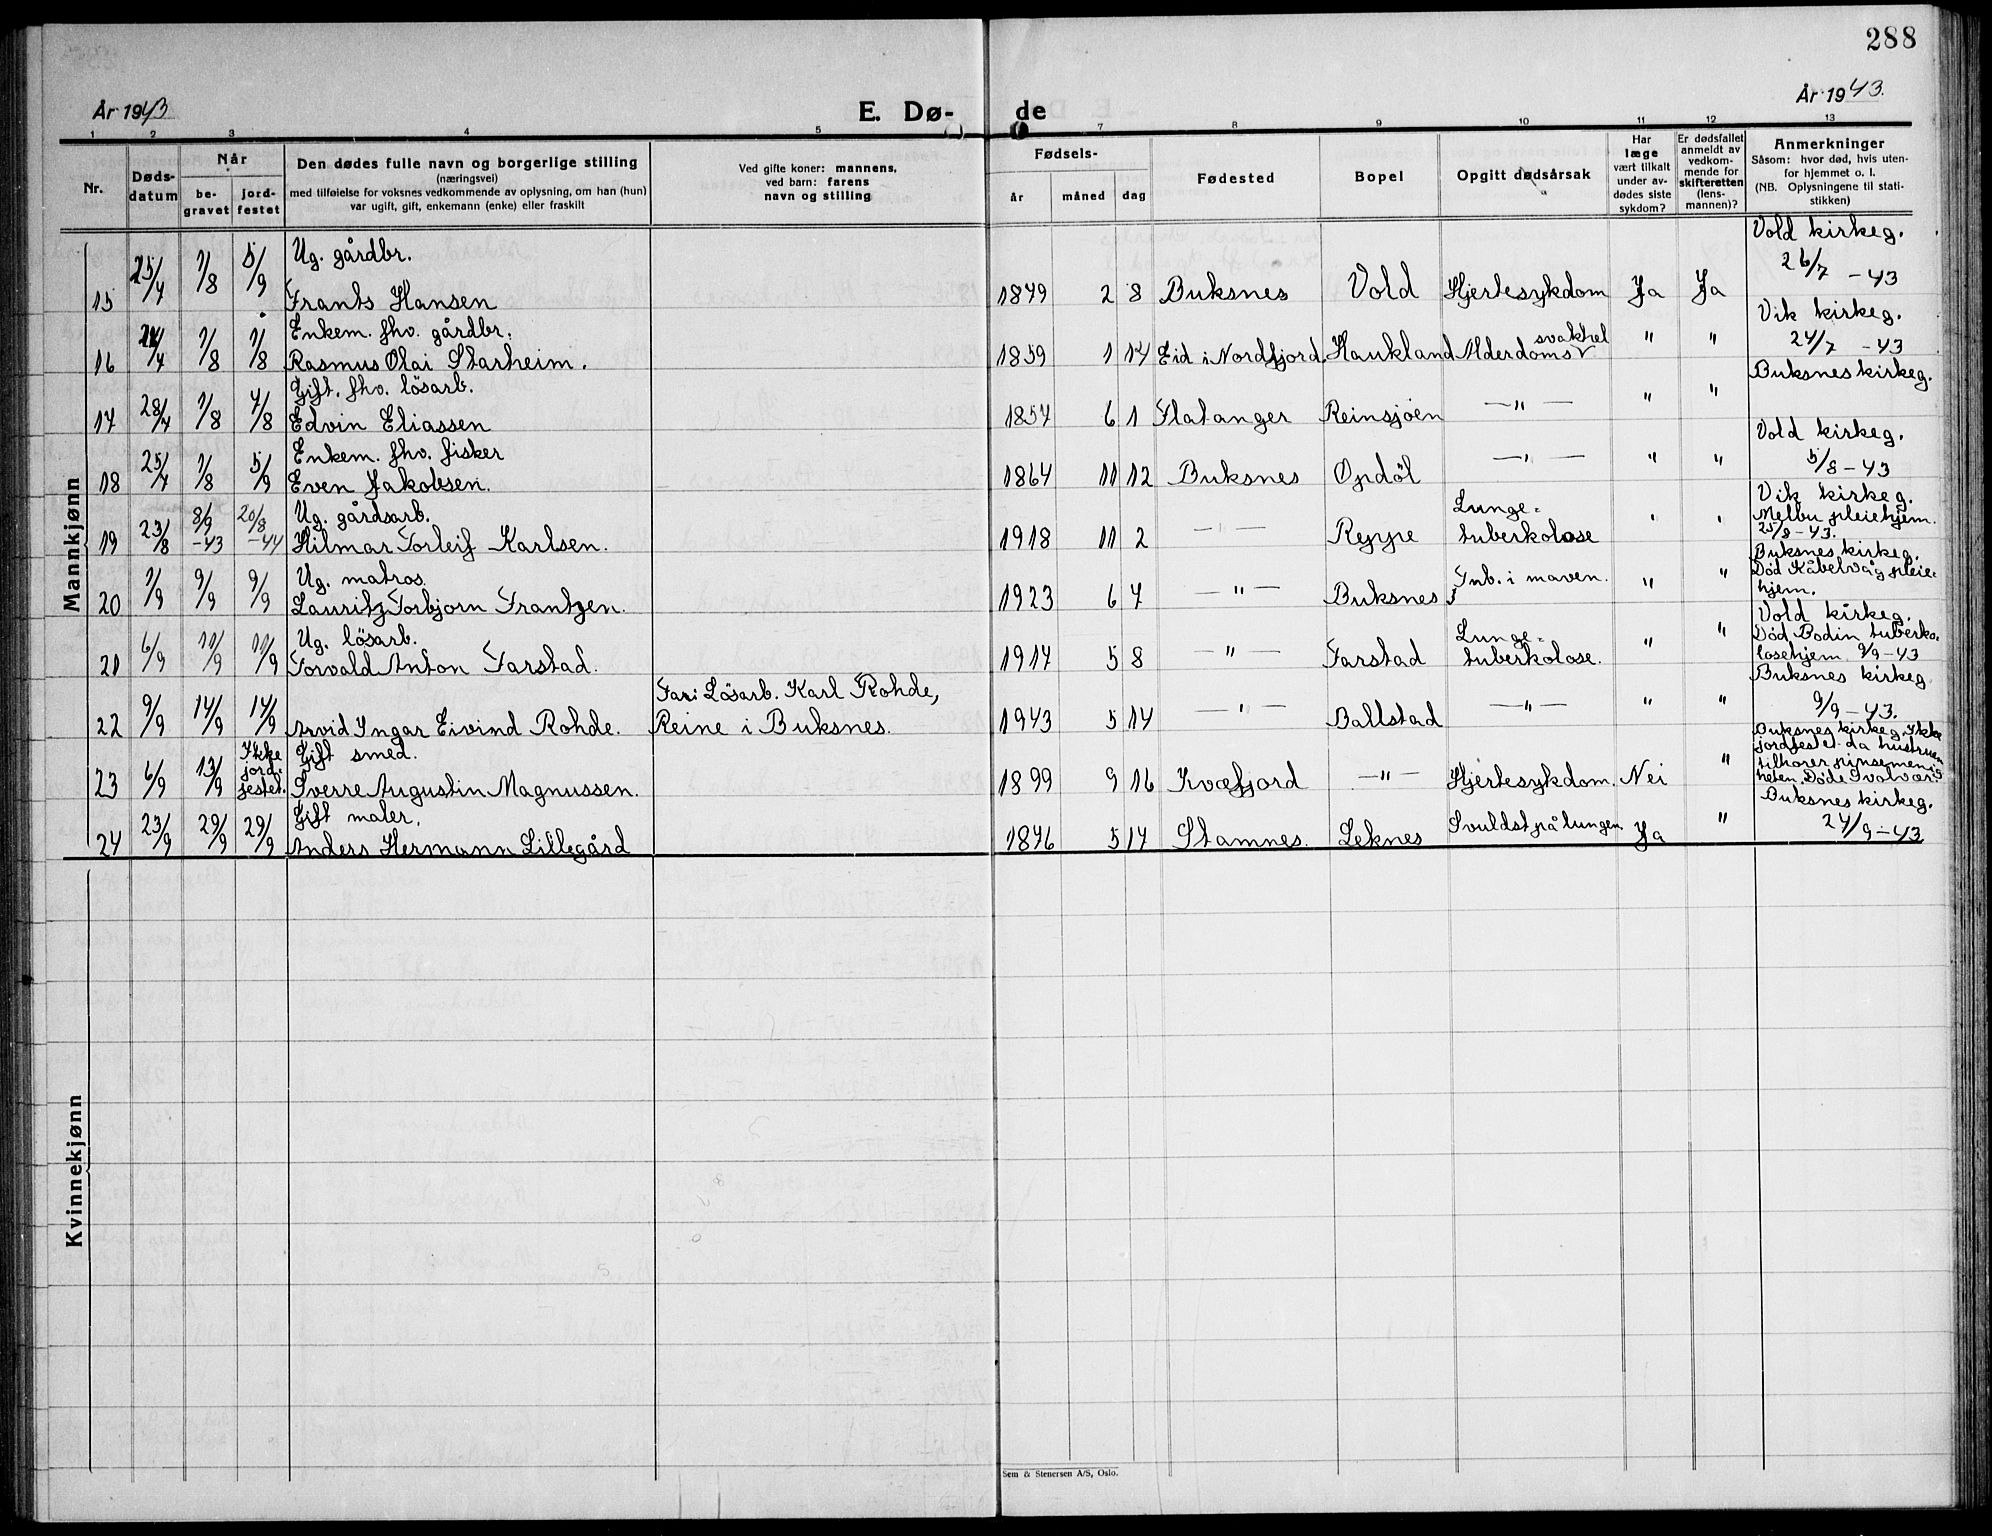 288
År 1943
E. Dø-
de
År 1943.
1 2 3 4 5 7 8 9 10 11 12 13
Nr.
Døds-
datum
Når
be-
gravet
jord-
festet
Den dødes fulle navn og borgerlige stilling
(næringsvei)
med tilføielse for voksnes vedkommende av oplysning, om han (hun)
var ugift, gift, enkemann (enke) eller fraskilt
Ved gifte koner: mannens,
ved barn: farens
navn og stilling
Fødsels-
år måned dag
Fødested
Bopel
Opgitt dødsårsak
Har
læge
vært tilkalt
under av-
dødes siste
sykdom?
Er dødsfallet
anmeldt av
vedkom-
mende for
skifteretten
(lens-
mannen)?
Anmerkninger
Såsom: hvor død, hvis uten-
for hjemmet o. l.
(NB. Oplysningene til stati-
stikken)
Mannkjønn
Ug. gårdbr. Vold kirkeg.
15 25/7 1/8 5/9 Frants Hansen 1879 2 8 Buksnes Vold Hjertesykdom Ja Ja 26/7 - 43
Enkem. fhv. gårdbr. Vik kirkeg.
16 1/8 1/8 Rasmus Olai Starheim. 1859 1 17 Eid i Nordfjord. Haukland Alderdomssvakhet " " 24/7 - 43
Gift. fhv. lösarb. Buksnes kirkeg.
17 28/7 1/8 7/8 Edvin Eliassen 1857 6 1 Flatanger Reinsjöen —"— " "
Enkem. fhv. fisker Vold kirkeg.
18 25/7 1/8 5/9 Even Jakobsen. 1864 11 12 Buksnes Opdöl —"— " " 5/8 - 43
Ug. gårdsarb. Lunge= Vik kirkeg.
19 23/8 8/9 -43 20/8 -44 Hilmar Torleif Karlsen. 1918 11 2 —"— Reppe tuberkolose " " Melbu pleiehjem.
25/8 - 43.
Ug. matros. Buksnes kirkeg.
20 1/9 9/9 9/9 Lauritz Torbjorn Frantzen. 1923 6 7 —"— Buksnes Tub. i maven. " " Död Kåbelvåg pleie-
hjem.
Ug. lösarb. Lunge= Vold kirkeg.
21 6/9 11/9 11/9 Torvald Anton Farstad. 1917 5 8 —"— Farstad tuberkolose. " " Död Bodin tuberko-
losehjem 9/9 - 43
Far: Lösarb. Karl Rohde, Buksnes kirkeg.
22 9/9 14/9 14/9 Arvid Ingar Eivind Rohde. Reine i Buksnes. 1943 5 14 —"— Ballstad —"— " " 9/9 - 43.
Ikke
jord-
festet.
Gift smed. Buksnes kirkeg. Ikke
23 6/9 13/9 Sverre Augustin Magnussen. 1899 9 16 Kvæfjord —"— Hjertesykdom. Nei " jordfestet da hustruen
tilhører pinsemenig-
heten. Döde i Svolvær
Gift maler. Buksnes kirkeg.
24 23/9 29/9 29/9 Anders Hermann Lillegård 1876 5 17 Stamnes. Leknes Svulst på lungen Ja " 24/9 - 43
Kvinnekjønn
Sem & Stenersen A/S, Oslo.